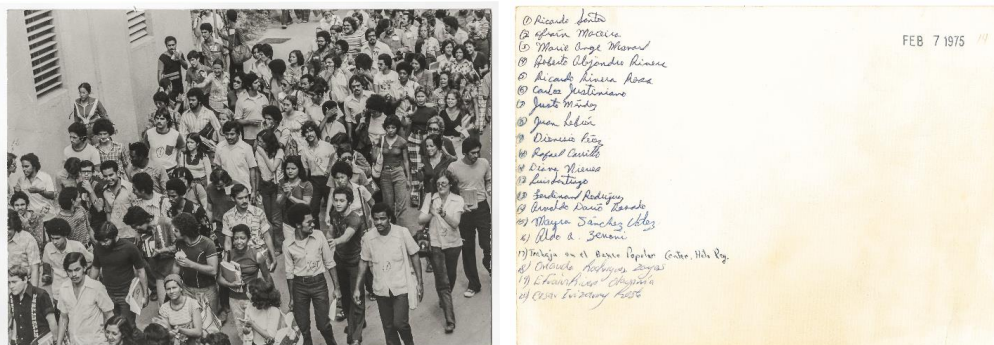 (1) Ricardo Santos
(2) Efraín Maceira
(3) Marie Ange
(4) Roberto Alejandro Rivera
(5) Ricardo Rivera Rosa
(6) Carlos Justiniano
(7) Justo Méndez
(8) Juan Lebrón
(9) Dionisio Pérez
(10) Rafael Carrillo
(11) Diana Nieves
(12) Luis Santiago
(13) Ferdinand Rodríguez
(14) Arnaldo Darío Rosado
(15) Mayra Sánchez Vélez
(16) Aldo A.
(17) Trabaja en el Banco Popular Centro, Hato Rey.
(18) Orlando Rodríguez
(19) Efraín Rivera
(20) Cesar Irizarry
FEB 7 1975